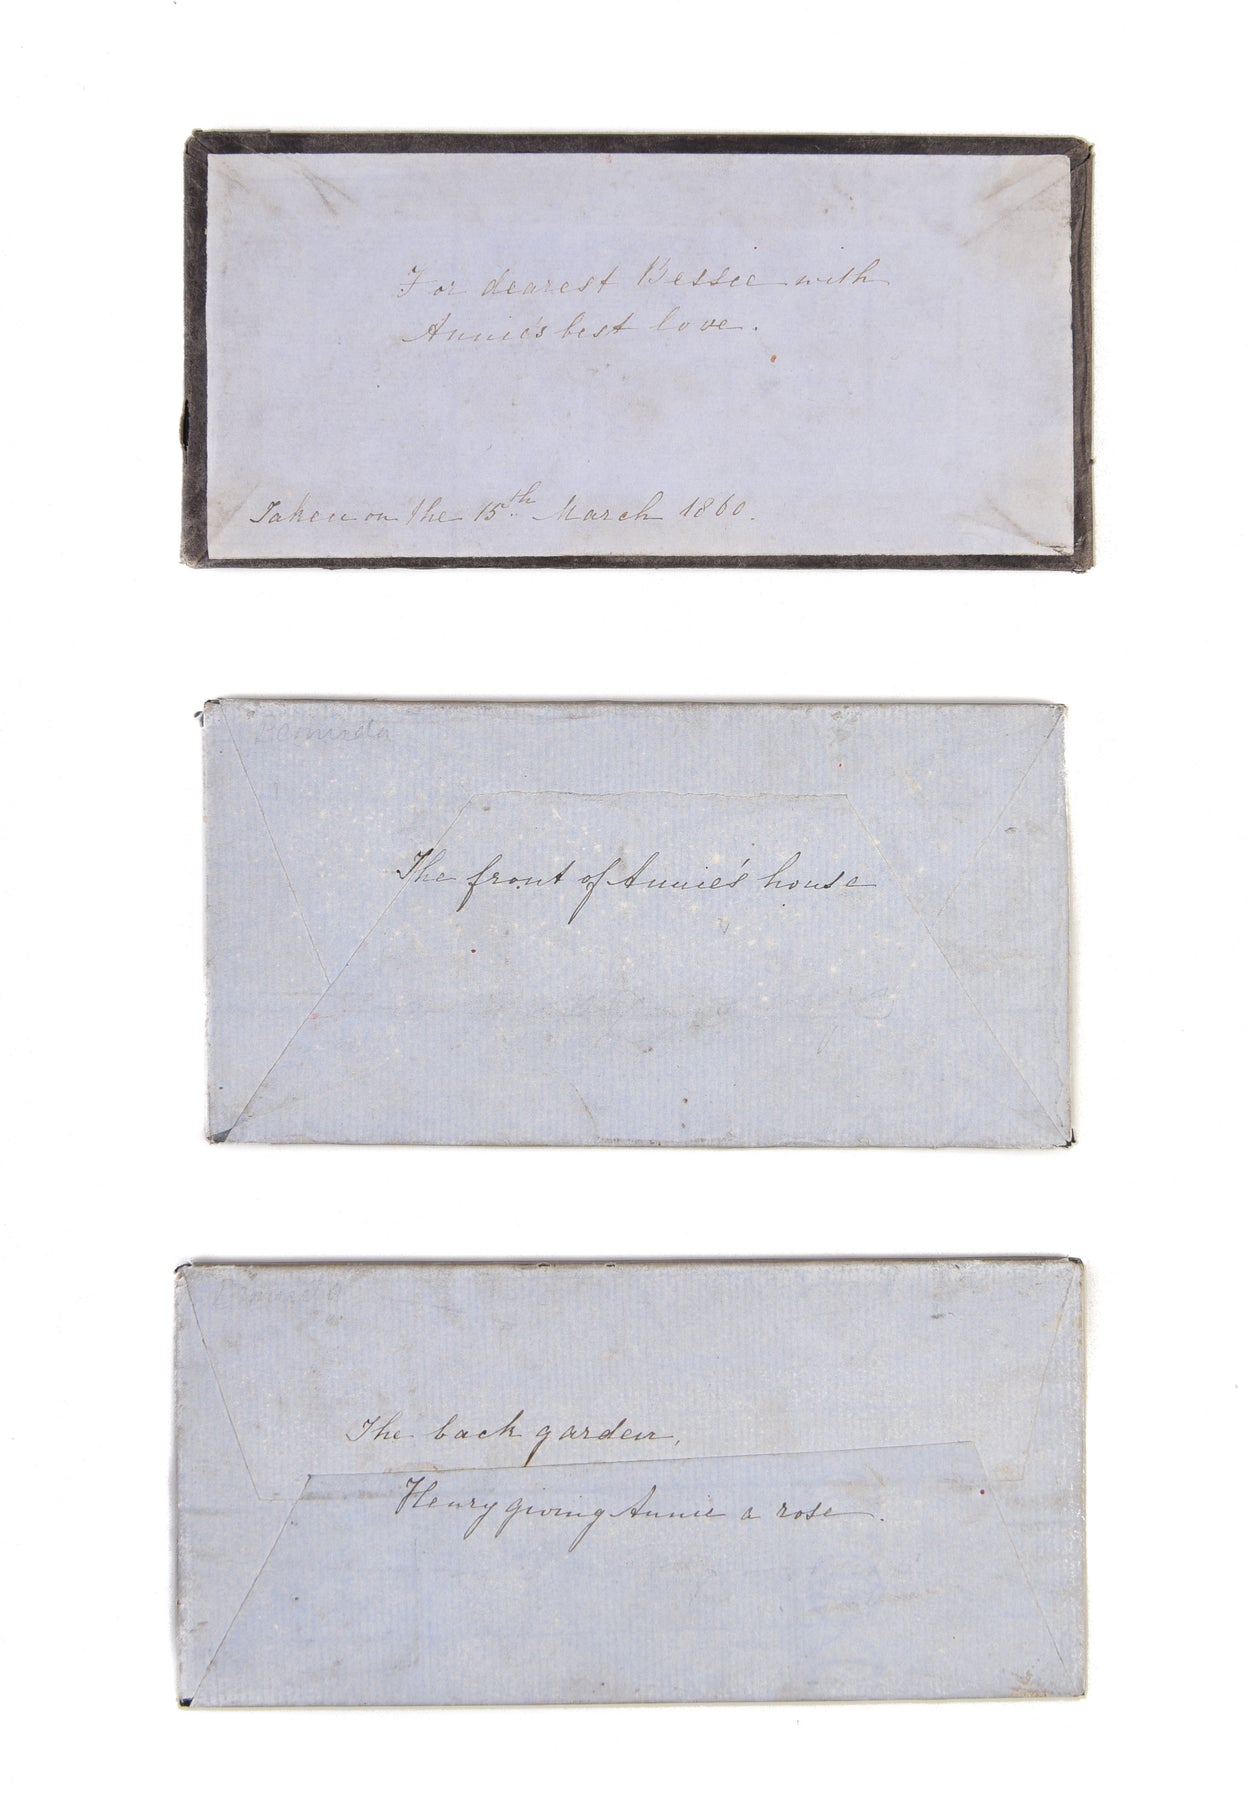 For dearest Bessie with
Annie's best love.
Taken on the 15th March 1860.
Bermuda
The front of Annie's house
Bermuda
The back garden,
Henry giving Annie a rose.